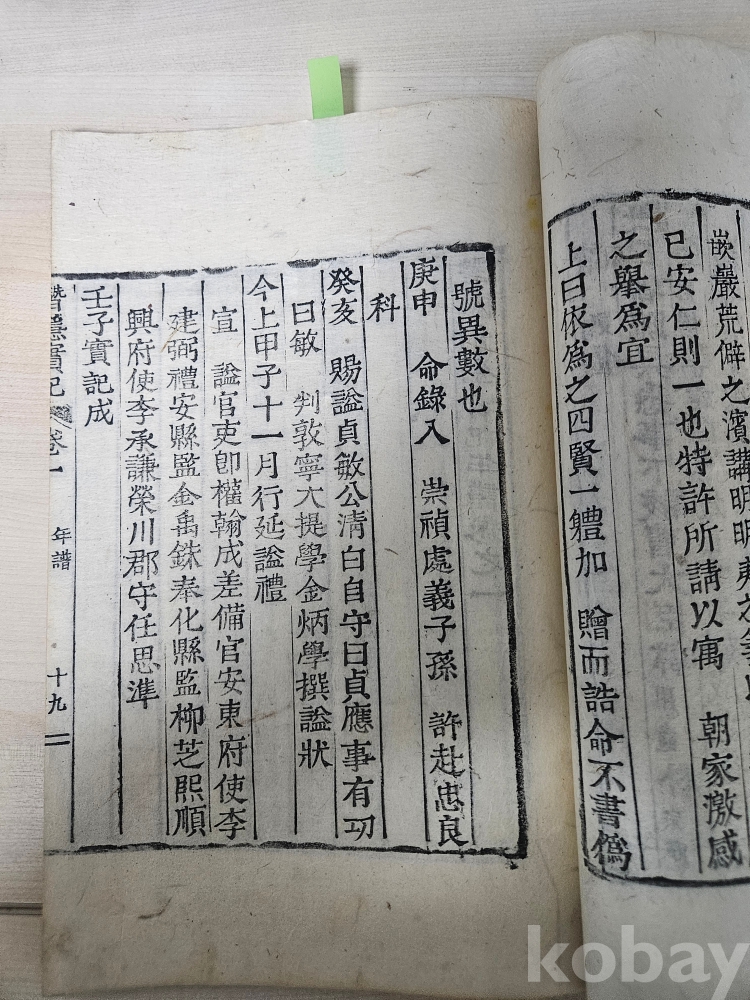 嵌巖荒僻之濱講明明夷之
已安仁則一也特許所請以寓 朝家激感
之舉爲宜
上曰依爲之四賢一軆加 贈而誥命不書僞
號異數也
庚申 命錄入 崇禎處義子孫 許赴忠良
科
癸亥 賜諡貞敏公淸白自守曰貞應事有功
曰敏 判敦寧大提學金炳學撰諡狀
今上甲子十一月行延諡禮
宣 諡官吏郞權翰成差備官安東府使李
建弼禮安縣監金禹銖奉化縣監柳芝熙順
興府使李承謙榮川郡守任思準
壬子實記成
潛隱實記 卷一 年譜 十九
kobay